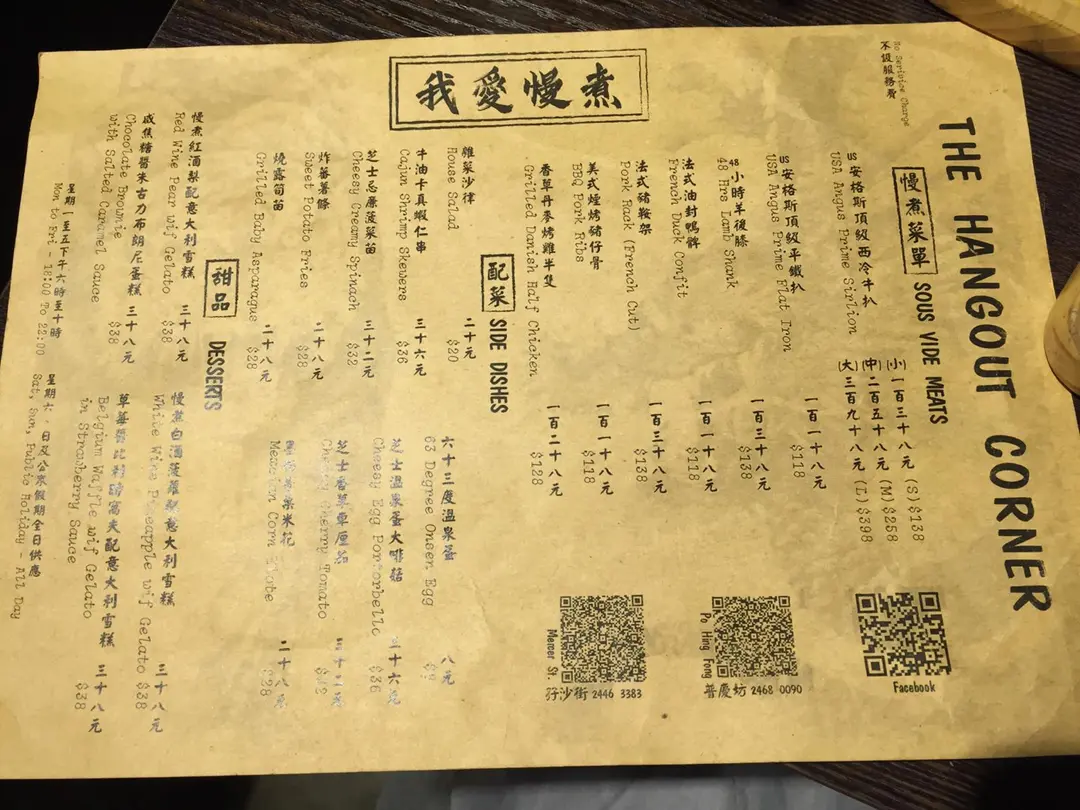 THE HANGOUT CORNER
No Serivice Charge
不設服務費
慢煮菜單 SOUS VIDE MEATS
US安格斯頂級西冷牛扒 (小) 一百三十八元 (S) $138
USA Angus Prime Sirlion (中) 二百五十八元 (M) $258
(大) 三百九十八元 (L) $398
US安格斯頂級平鐵扒 一百一十八元
USA Angus Prime Flat Iron $118
48小時羊後膝 一百三十八元
48 Hrs Lamb Shank $138
法式油封鴨髀 一百一十八元
French Duck Confit $118
法式豬鞍架 一百三十八元
Pork Rack (French Cut) $138
美式煙烤豬仔骨 一百一十八元
BBQ Pork Ribs $118
香草丹麥烤雞半隻 一百二十八元
Grilled Danish Half Chicken $128
Facebook
Po Hing Fong
普慶坊 2468 0090
Mercer St.
孖沙街 2446 3383
我愛慢煮
配菜 SIDE DISHES
雜菜沙律 二十元
House Salad $20
牛油卡真蝦仁串 三十六元
Cajun Shrimp Skewers $36
芝士忌廉菠菜苗 三十二元
Cheesy Creamy Spinach $32
炸蕃薯條 二十八元
Sweet Potato Fries $28
燒露筍苗 二十八元
Grilled Baby Asparagus $28
六十三度溫泉蛋 八元
63 Degree Onsen Egg
芝士溫泉蛋大啡菇 三十六元
Cheesy Egg Portorbello $36
芝士香草車厘茄
Cheesy Cherry Tomato
粟米花 二十八元
Mexican Corn $28
甜品 DESSERTS
慢煮紅酒梨配意大利雪糕 三十八元
Red Wine Pear wif Gelato $38
咸焦糖醬朱古力布朗尼蛋糕 三十八元
Chocolate Brownie $38
with Salted Caramel Sauce
慢煮白酒菠蘿配意大利雪糕 三十八元
White Wine Pineapple wif Gelato $38
草莓醬比利時窩夫配意大利雪糕 三十八元
Belgium Waffle wif Gelato $38
in Strawberry Sauce
星期一至五下午六時至十時
Mon to Fri - 18:00 To 22:00
星期六、日及公眾假期全日供應
Sat, Sun, Public Holiday - All Day